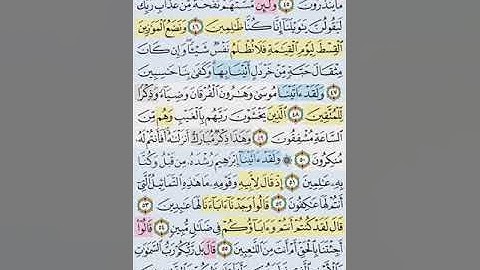 مَا يُنذَرُونَ ٤٥ وَلَئِن مَّسَّتْهُمْ نَفْحَةٌ مِّنْ عَذَابِ رَبِّكَ
لَيَقُولُنَّ يَٰوَيْلَنَآ إِنَّا كُنَّا ظَٰلِمِينَ ٤٦ وَنَضَعُ ٱلْمَوَٰزِينَ
ٱلْقِسْطَ لِيَوْمِ ٱلْقِيَٰمَةِ فَلَا تُظْلَمُ نَفْسٌ شَيْـًٔا وَإِن كَانَ
مِثْقَالَ حَبَّةٍ مِّنْ خَرْدَلٍ أَتَيْنَا بِهَا وَكَفَىٰ بِنَا حَٰسِبِينَ
٤٧ وَلَقَدْ ءَاتَيْنَا مُوسَىٰ وَهَٰرُونَ ٱلْفُرْقَانَ وَضِيَآءً وَذِكْرًا
لِّلْمُتَّقِينَ ٤٨ ٱلَّذِينَ يَخْشَوْنَ رَبَّهُم بِٱلْغَيْبِ وَهُم مِّنَ
ٱلسَّاعَةِ مُشْفِقُونَ ٤٩ وَهَٰذَا ذِكْرٌ مُّبَارَكٌ أَنزَلْنَٰهُ أَفَأَنتُمْ لَهُۥ
مُنكِرُونَ ٥٠ ۞ وَلَقَدْ ءَاتَيْنَآ إِبْرَٰهِيمَ رُشْدَهُۥ مِن قَبْلُ وَكُنَّا
بِهِۦ عَٰلِمِينَ ٥١ إِذْ قَالَ لِأَبِيهِ وَقَوْمِهِۦ مَا هَٰذِهِ ٱلتَّمَاثِيلُ ٱلَّتِىٓ
أَنتُمْ لَهَا عَٰكِفُونَ ٥٢ قَالُوا۟ وَجَدْنَآ ءَابَآءَنَا لَهَا عَٰبِدِينَ ٥٣
قَالَ لَقَدْ كُنتُمْ أَنتُمْ وَءَابَآؤُكُمْ فِى ضَلَٰلٍ مُّبِينٍ ٥٤ قَالُوٓا۟
أَجِئْتَنَا بِٱلْحَقِّ أَمْ أَنتَ مِنَ ٱللَّٰعِبِينَ ٥٥ قَالَ بَل رَّبُّكُمْ رَبُّ ٱلسَّمَٰوَٰتِ